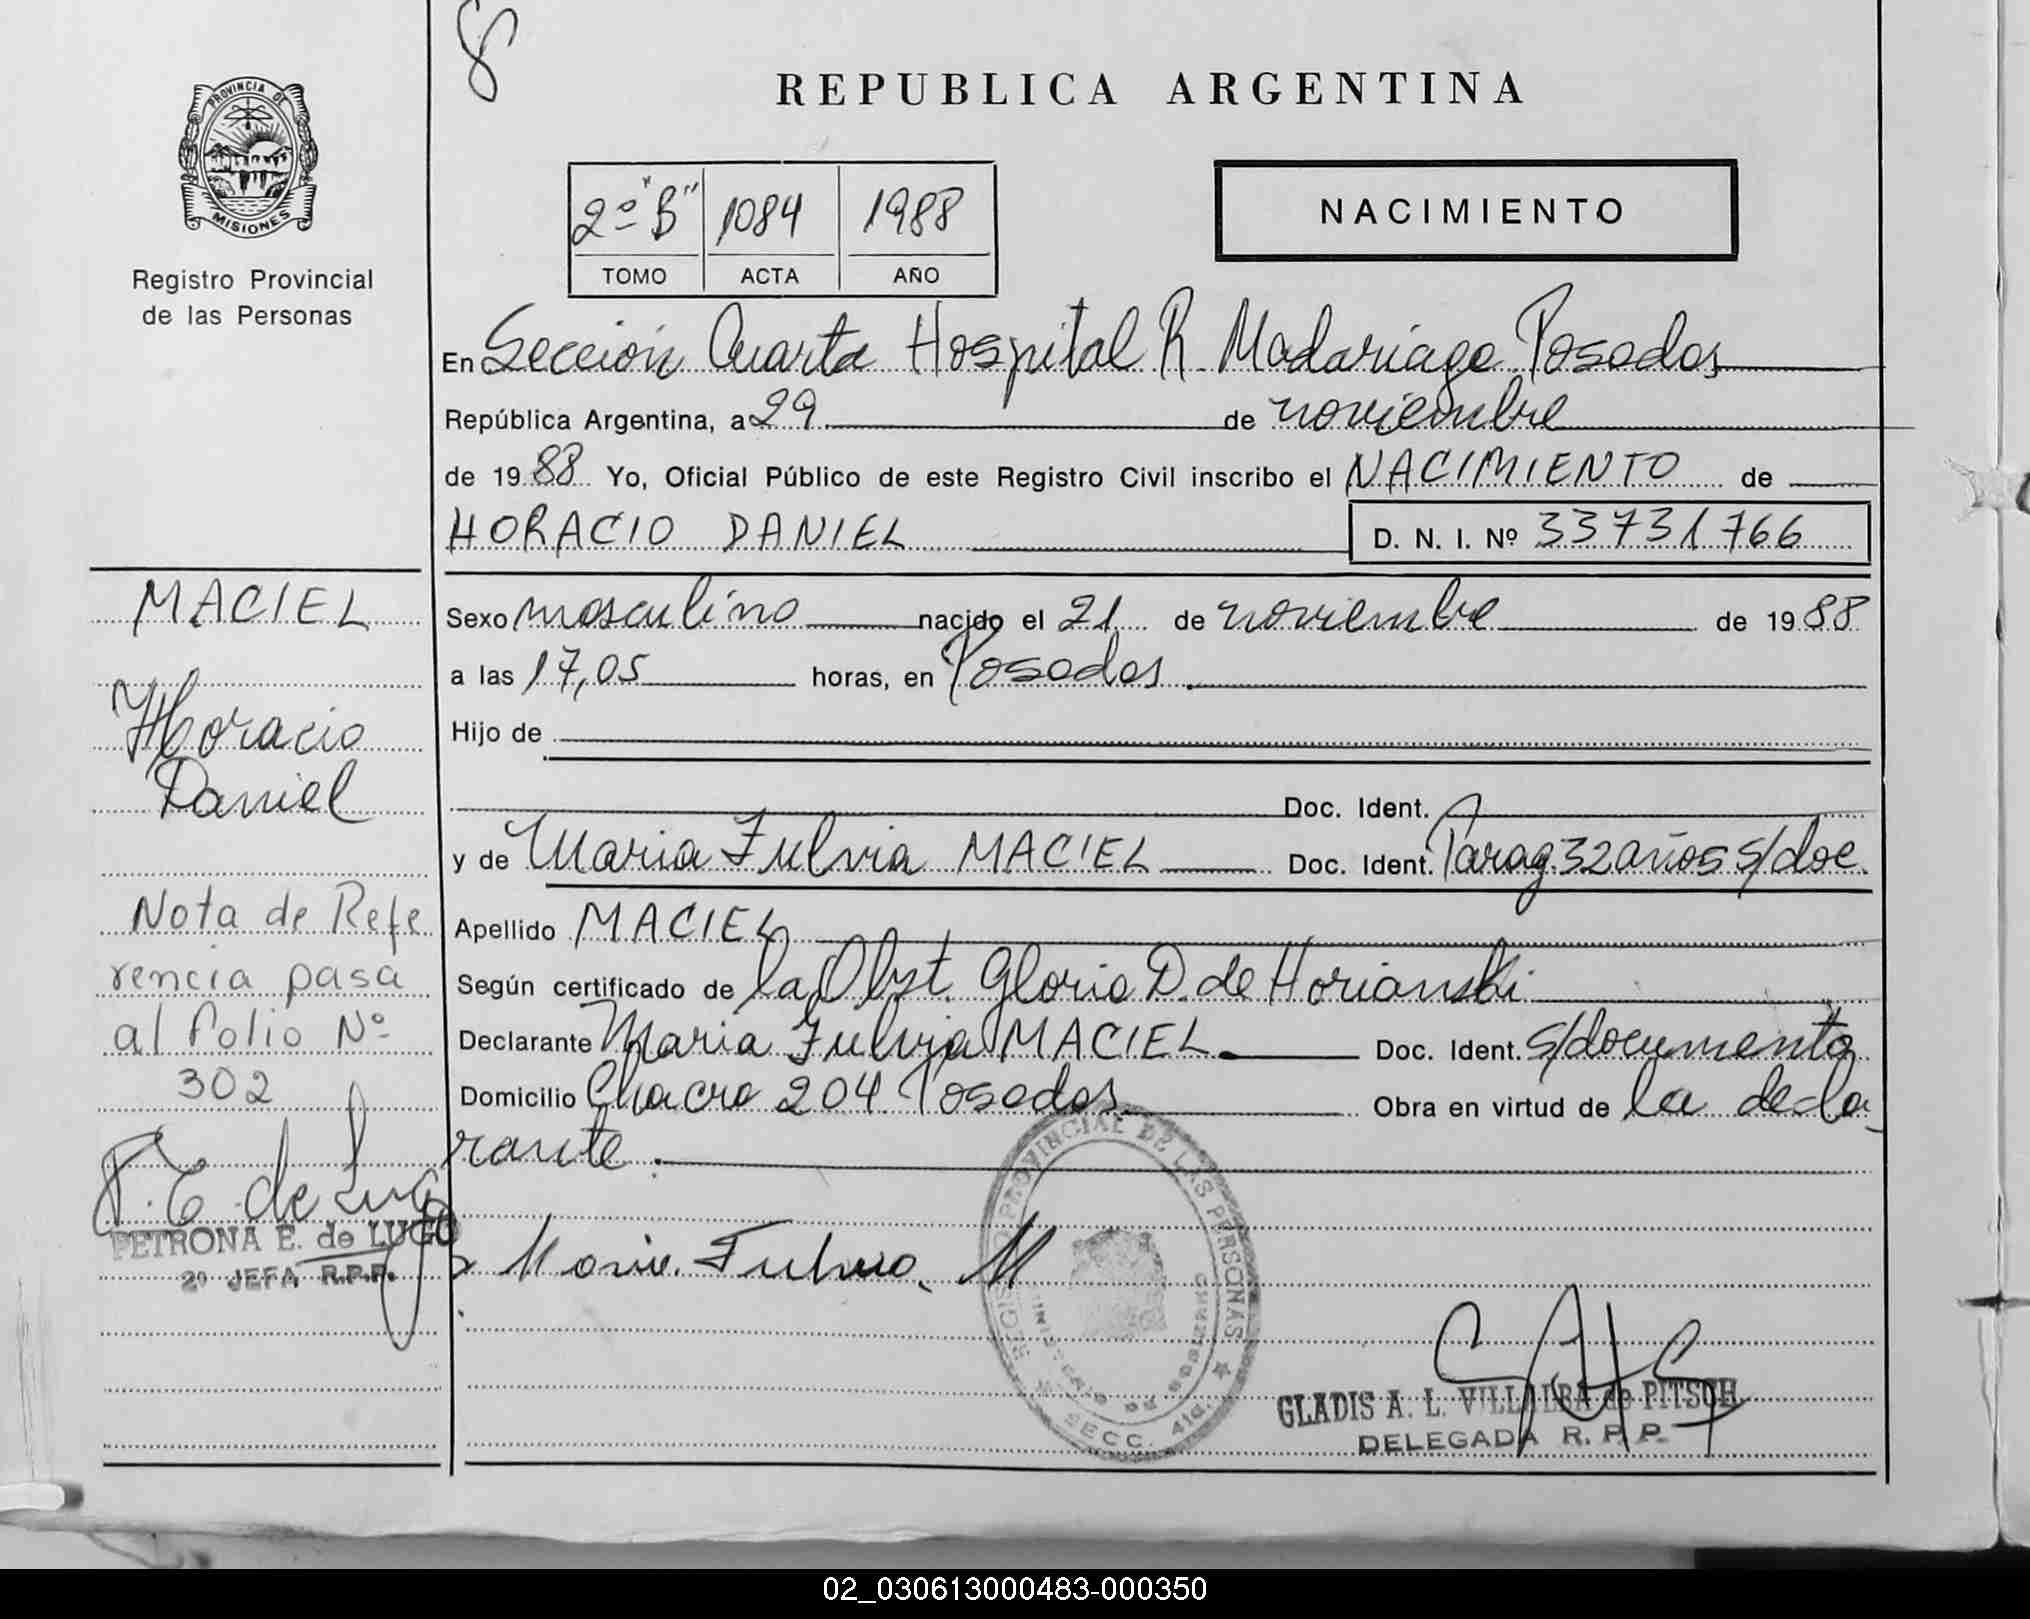 8
PROVINCIA DE
MISIONES
Registro Provincial
de las Personas
REPUBLICA ARGENTINA
2º "B" 1084 1988
TOMO ACTA AÑO
NACIMIENTO
En Sección Cuarta Hospital R. Madariaga Posadas
República Argentina, a 29 de noviembre
de 1988 Yo, Oficial Público de este Registro Civil inscribo el NACIMIENTO de
HORACIO DANIEL D. N. I. Nº 33731766
Sexo masculino nacido el 21 de noviembre de 1988
a las 17,05 horas, en Posadas
Hijo de
Doc. Ident.
y de Maria Fulvia MACIEL Doc. Ident. Parag. 32 años s/doc.
Apellido MACIEL
Según certificado de la Obst. Gloria D. de Horianski
Declarante Maria Fulvia MACIEL Doc. Ident. s/documento
Domicilio Chacra 204 Posadas Obra en virtud de la decla
rante.
Maria Fulvia M
MACIEL
Horacio
Daniel
Nota de Refe
rencia pasa
al folio Nº
302
P. E. de Lugo
PETRONA E. de LUGO
2º JEFA R.P.P.
REGISTRO PROVINCIAL DE LAS PERSONAS
SECC. 4ta.
GLADIS A. L. VILLALBA de PITSCH
DELEGADA R. P. P.
02_030613000483-000350